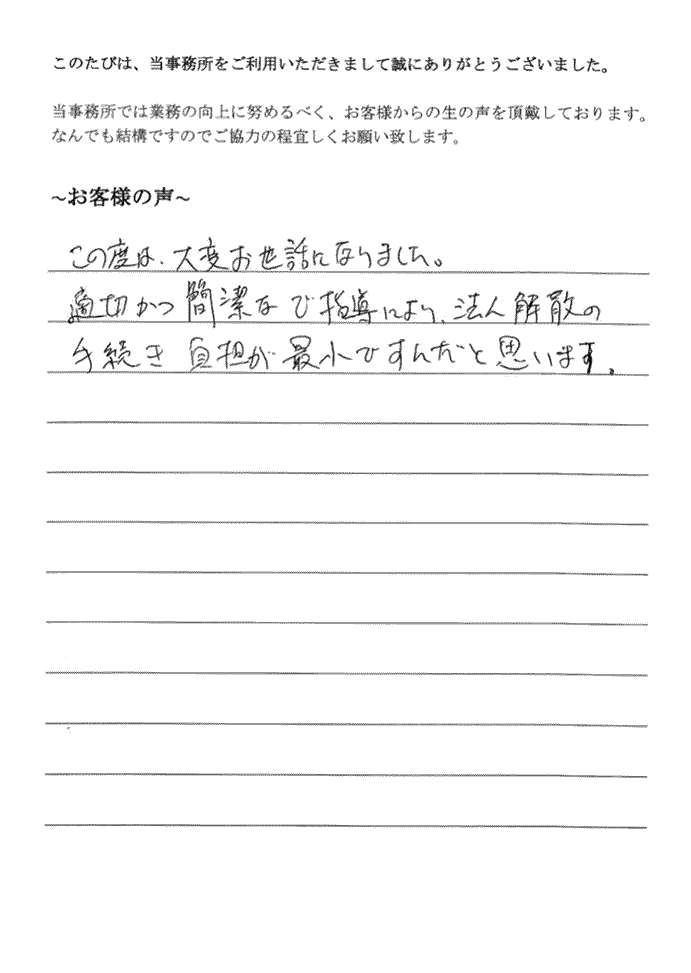 このたびは、当事務所をご利用いただきまして誠にありがとうございました。
当事務所では業務の向上に努めるべく、お客様からの生の声を頂戴しております。
なんでも結構ですのでご協力の程宜しくお願い致します。
~お客様の声~
この度は、大変お世話になりました。
適切かつ簡潔なご指導により、法人解散の
手続き負担が最小ですんだと思います。